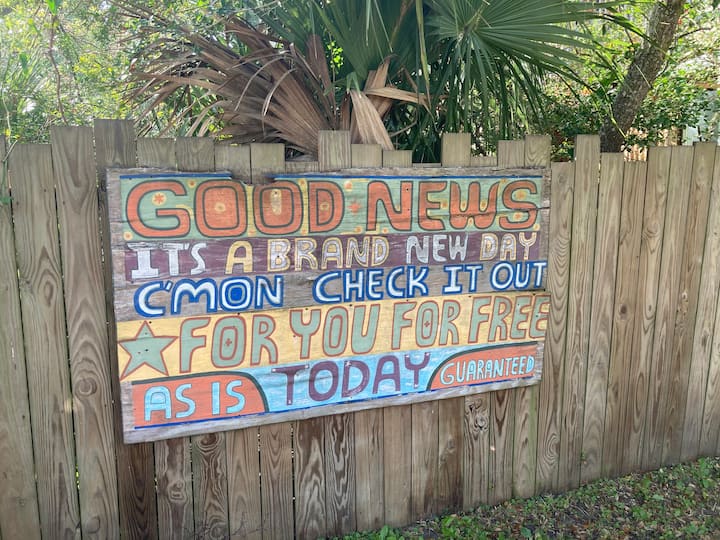 GOOD NEWS
IT'S A BRAND NEW DAY
C'MON CHECK IT OUT
FOR YOU FOR FREE
AS IS TODAY GUARANTEED